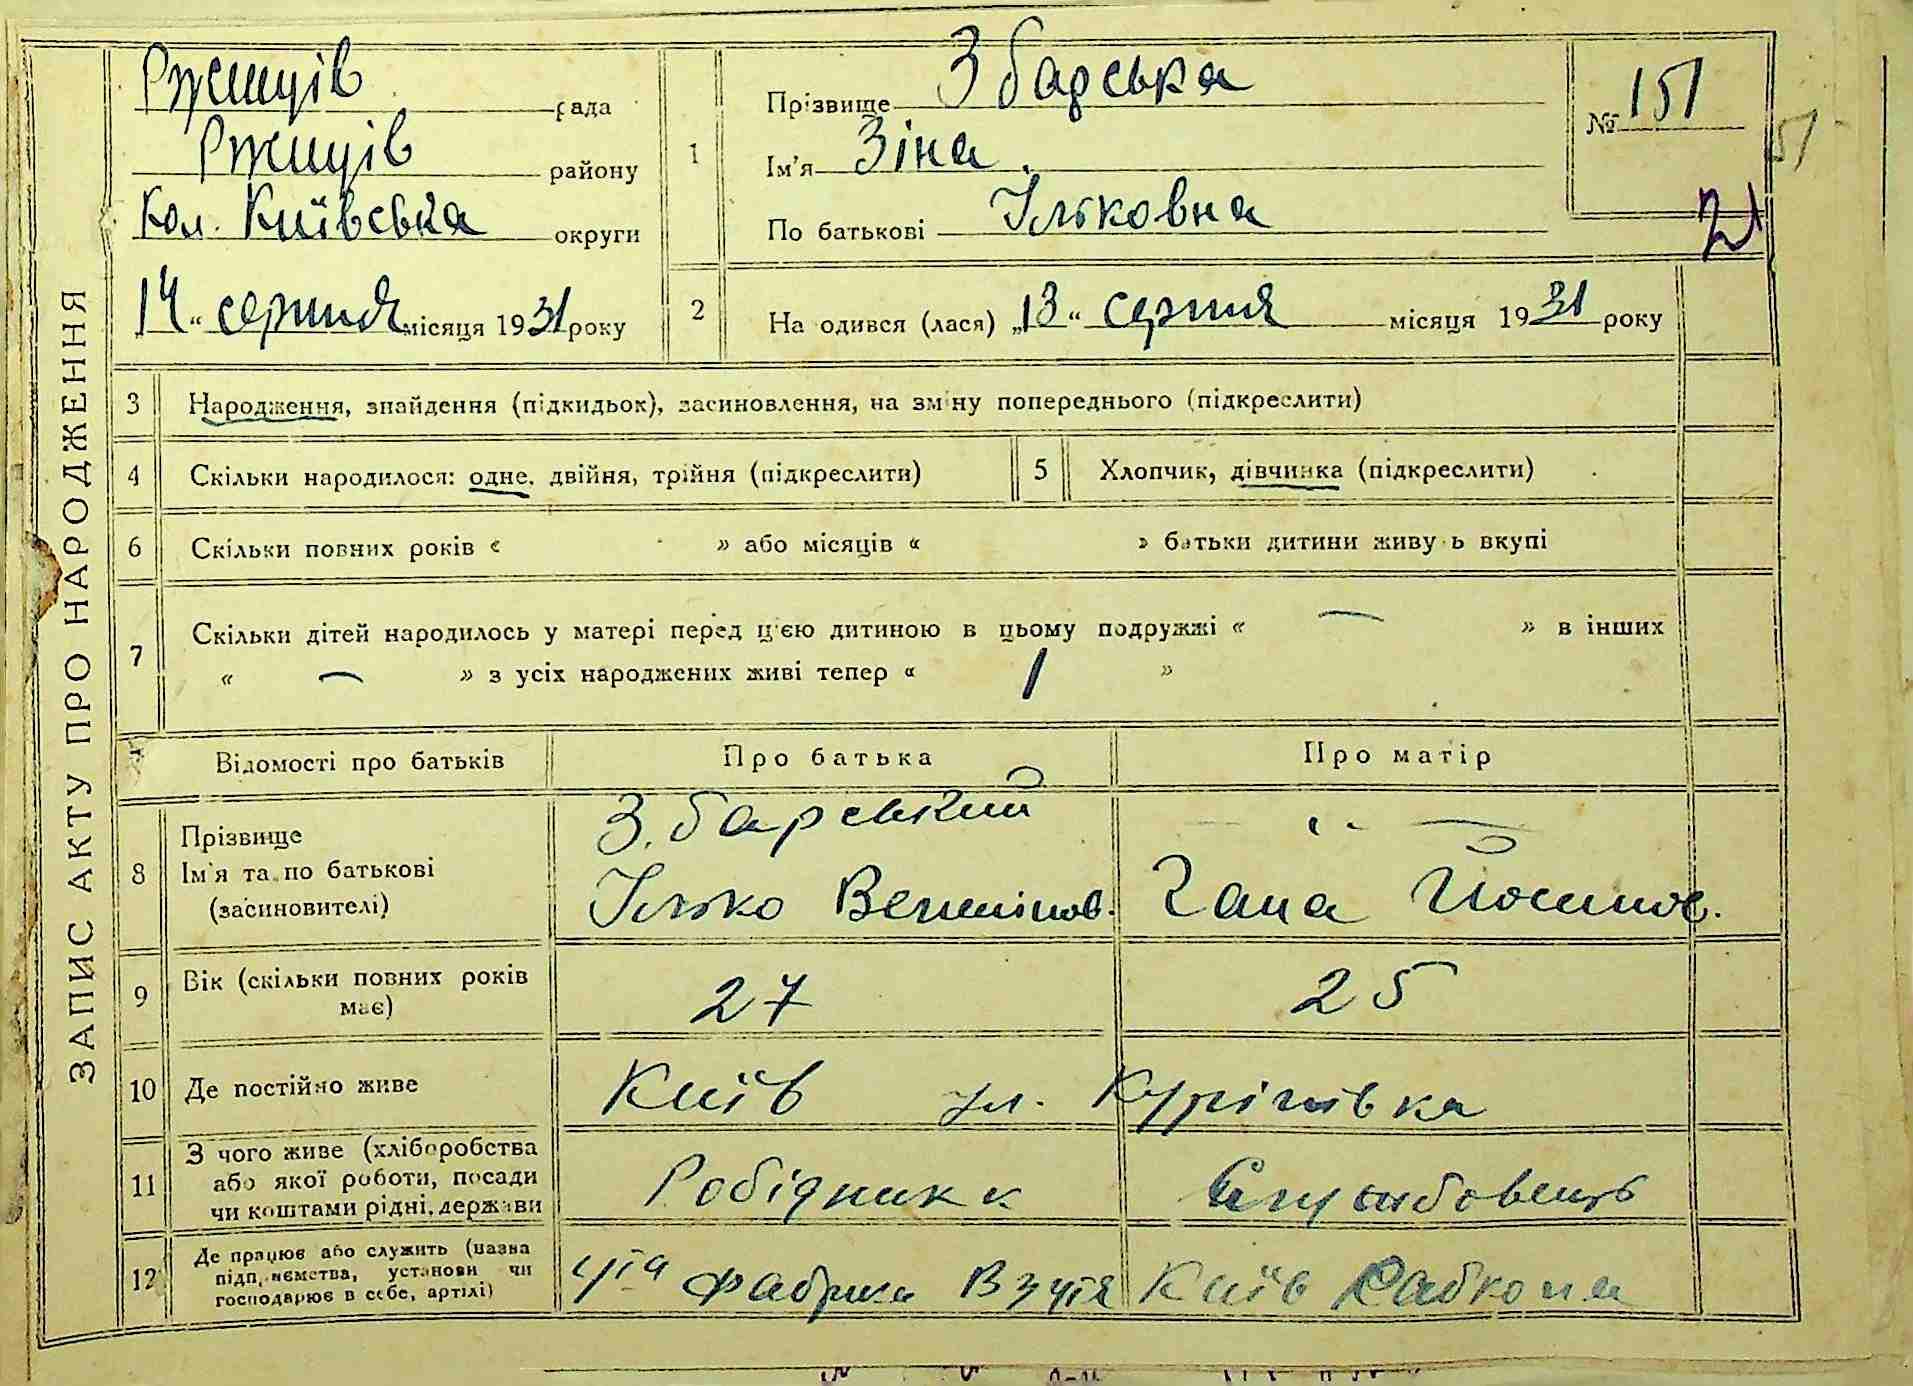 ЗАПИС АКТУ ПРО НАРОДЖЕННЯ
Ржищів рада
Ржищів району
Кол. Київська округи
14 “ серпня місяця 1931 року
1
Прізвище Збарська
Ім’я Зіна
По батькові Ільковна
№ 151
51
2 На одився (лася) „13“ серпня місяця 1931 року
3 Народження, знайдення (підкидьок), засиновлення, на зміну попереднього (підкреслити)
4 Скільки народилося: одне, двійня, трійня (підкреслити) 5 Хлопчик, дівчинка (підкреслити)
6 Скільки повних років « » або місяців « » батьки дитини живуть вкупі
7 Скільки дітей народилось у матері перед цією дитиною в цьому подружжі « — » в інших
« — » з усіх народжених живі тепер « 1 »
Відомості про батьків Про батька Про матір
8 Прізвище
Ім’я та по батькові
(засиновителі)
Збарський
Ілько — „ —
Гана Йосипов.
9 Вік (скільки повних років
має)
27 25
10 Де постійно живе Київ ул. Куренівка
11 З чого живе (хліборобства
або якої роботи, посади
чи коштами рідні, держави
Робідник
12 Де працює або служить (назва
підприємства, установи чи
господарює в себе, артілі)
фабрика Взутя Київ